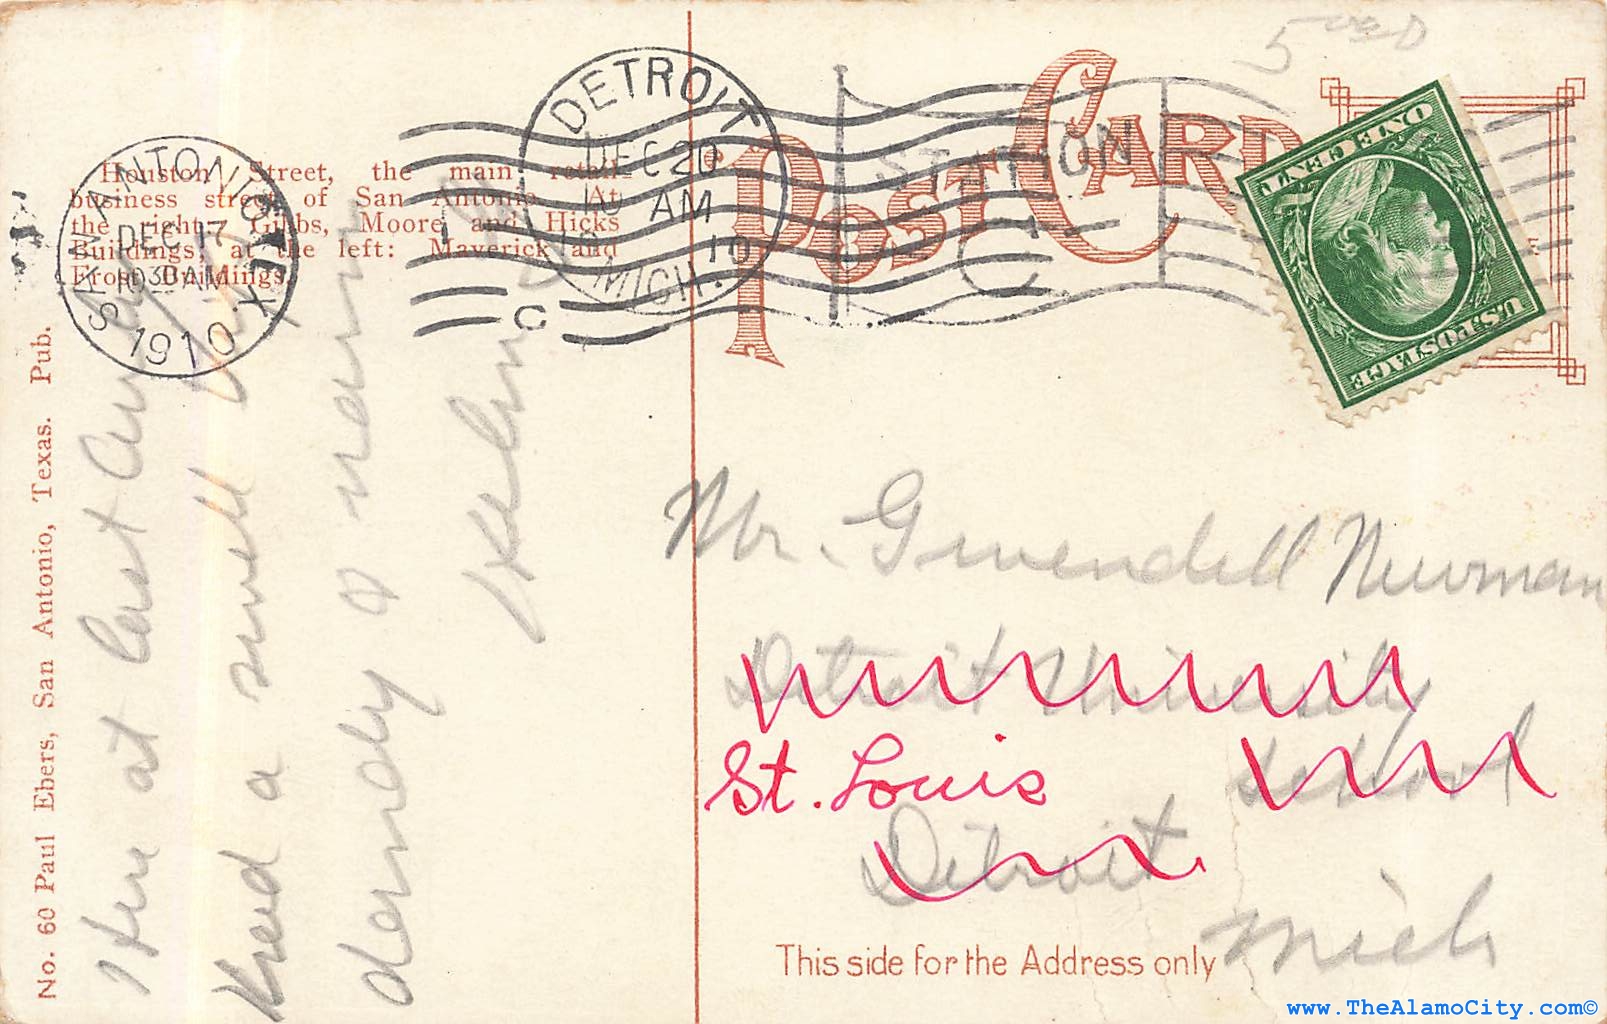 Houston Street, the main retail
business street of San Antonio. At
the right: Gibbs, Moore and Hicks
Buildings, at the left: Maverick and
Frost Buildings.
No. 60 Paul Ebers, San Antonio, Texas. Pub.
SAN ANTONIO, TEX.
DEC 17
1910
DETROIT
DEC 20
AM
10
MICH.
C
STATION
C
POST CARD
ONE CENT
U.S. POSTAGE
at last
had a swell
dandy
Mr. Gwendell Newman
Detroit University
St. Louis School
Detroit
Mich
This side for the Address only
www.TheAlamoCity.com©